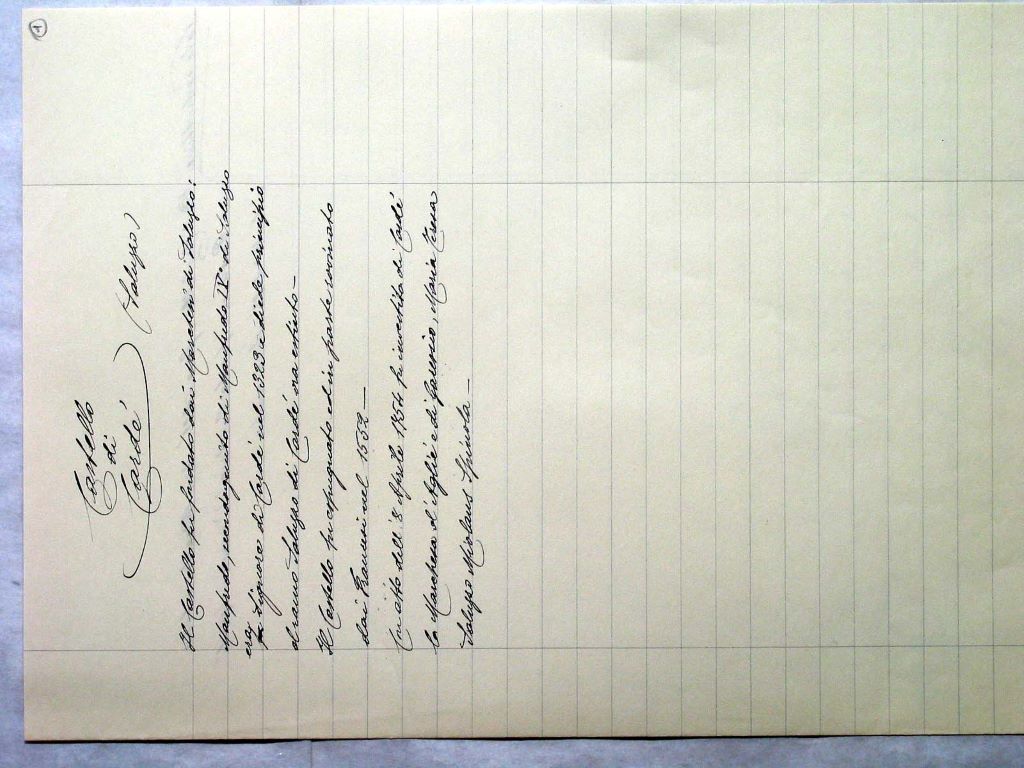 1
Castello
di
Cardé (Saluzzo)
Il Castello fu fondato dai Marchesi di Saluzzo:
Manfredo, secondogenito di Manfredo IV° di Saluzzo
era
fu Signore di Cardé nel 1323 e diede principio
al ramo Saluzzo di Cardé ora estinto —
Il Castello fu espugnato ed in parte rovinato
dai Francesi nel 1552 —
Con atto dell' 8 Aprile 1854 fu investita di Cardé
la Marchesa d'Agliè e di Garessio, Maria Teresa
Saluzzo Miolans Spinola —